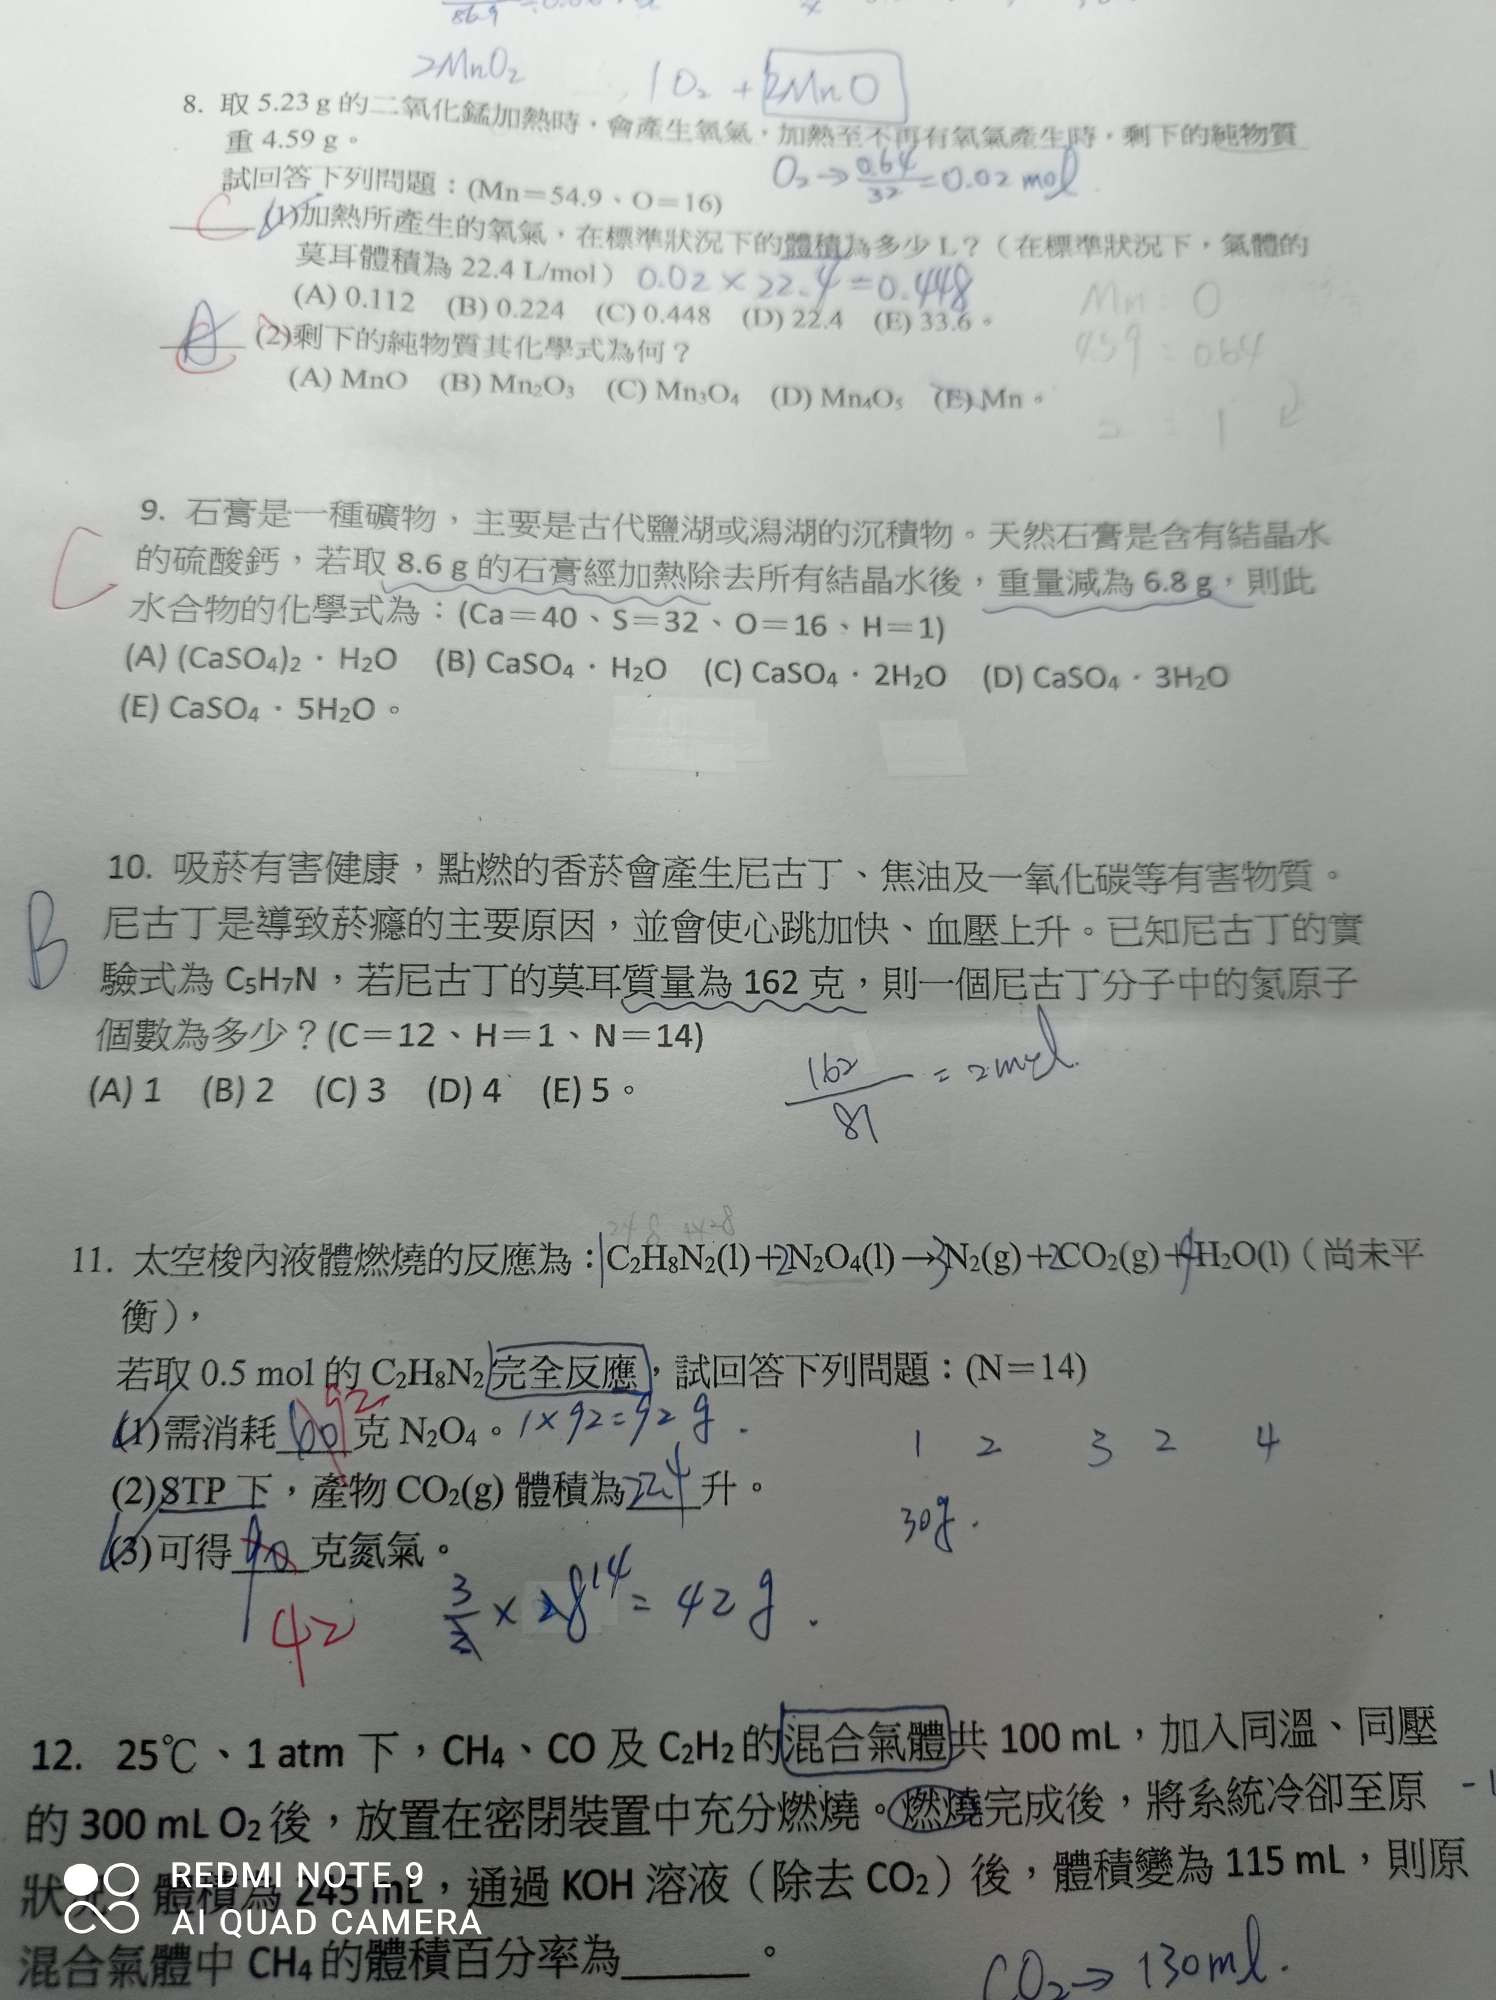 86.9
2MnO₂
1O₂ + 2MnO
8. 取 5.23 g 的二氧化錳加熱時，會產生氧氣，加熱至不再有氧氣產生時，剩下的純物質
重 4.59 g。
O₂→ 0.64/32 = 0.02 mol
試回答下列問題：(Mn＝54.9、O＝16)
C (1)加熱所產生的氧氣，在標準狀況下的體積為多少 L？（在標準狀況下，氣體的
莫耳體積為 22.4 L/mol）0.02 × 22.4 = 0.448
(A) 0.112 (B) 0.224 (C) 0.448 (D) 22.4 (E) 33.6。
Mn : O
4.59 = 0.64
(2)剩下的純物質其化學式為何？
(A) MnO (B) Mn₂O₃ (C) Mn₃O₄ (D) Mn₄O₅ (E) Mn。
2 : 1
C
9. 石膏是一種礦物，主要是古代鹽湖或潟湖的沉積物。天然石膏是含有結晶水
的硫酸鈣，若取 8.6 g 的石膏經加熱除去所有結晶水後，重量減為 6.8 g，則此
水合物的化學式為：(Ca＝40、S＝32、O＝16、H＝1)
(A) (CaSO₄)₂・H₂O (B) CaSO₄・H₂O (C) CaSO₄・2H₂O (D) CaSO₄・3H₂O
(E) CaSO₄・5H₂O。
B
10. 吸菸有害健康，點燃的香菸會產生尼古丁、焦油及一氧化碳等有害物質。
尼古丁是導致菸癮的主要原因，並會使心跳加快、血壓上升。已知尼古丁的實
驗式為 C₅H₇N，若尼古丁的莫耳質量為 162 克，則一個尼古丁分子中的氮原子
個數為多少？(C＝12、H＝1、N＝14)
(A) 1 (B) 2 (C) 3 (D) 4 (E) 5。
162/81 = 2 mol.
11. 太空梭內液體燃燒的反應為：1C₂H₈N₂(l)+2N₂O₄(l)→3N₂(g)+2CO₂(g)+4H₂O(l)（尚未平
衡），
若取 0.5 mol 的 C₂H₈N₂完全反應，試回答下列問題：(N＝14)
(1)需消耗 92 克 N₂O₄。1 × 92 = 92 g.
1 2 3 2 4
(2)STP 下，產物 CO₂(g) 體積為22.4升。
30g.
(3)可得___克氮氣。
42
3/2 × 28 14 = 42 g.
12. 25℃、1 atm 下，CH₄、CO 及 C₂H₂ 的混合氣體共 100 mL，加入同溫、同壓
的 300 mL O₂ 後，放置在密閉裝置中充分燃燒。燃燒完成後，將系統冷卻至原
狀況，體積為 245 mL，通過 KOH 溶液（除去 CO₂）後，體積變為 115 mL，則原
混合氣體中 CH₄ 的體積百分率為______。
CO₂→ 130ml.
REDMI NOTE 9
AI QUAD CAMERA